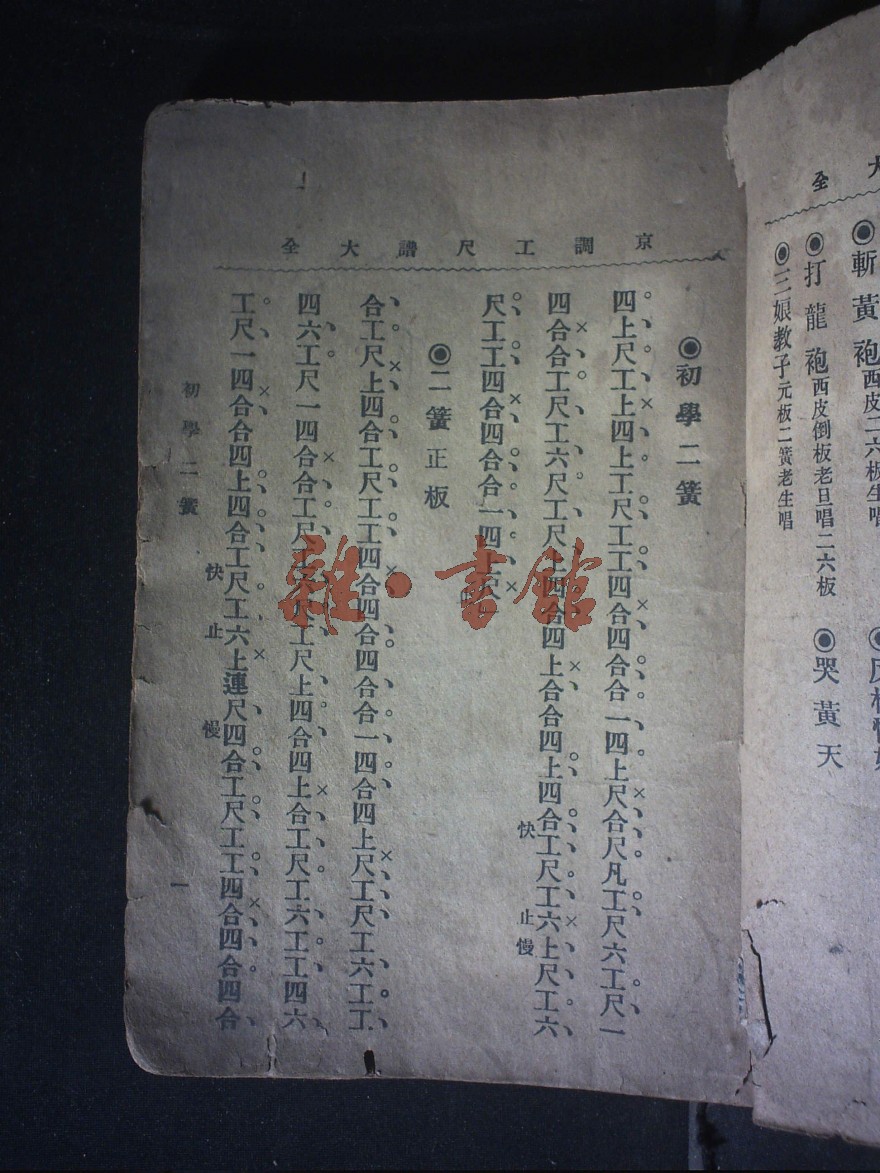 大
全
◉斬黃袍西皮二六板生唱
◉打龍袍西皮倒板老旦唱二六板
◉哭黃天
◉三娘教子元板二簧老生唱
京調工尺譜大全
◉初學二簧
四上尺工上四上工尺工工四合四合合一四上尺合尺凡工尺六工尺一
四合合工尺工六尺工尺上四合四上合合四上四合工尺工六上尺工六
快
止
慢
尺工工四合四合合一四上尺
◉二簧正板
合工尺上四合工尺工工四合四合四合合一四合四上尺工尺工六工工
四六工尺一四合合工尺工六尺工尺上四合四上合工尺工六工工四六
工尺一四合合四上四合工尺工六上連尺四合工尺工工四合四合四合
快
止
慢
初學二簧
一
雜·書館